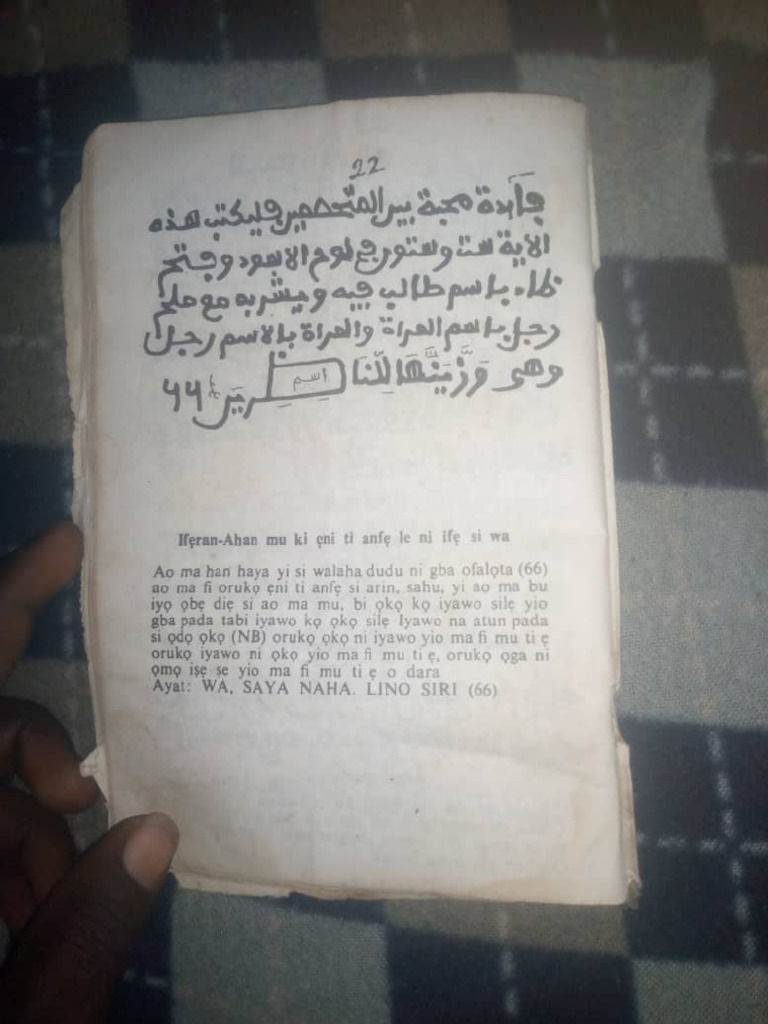 22
فآيدة محبة بين المتخصمين فليكتب هذه
الاية ست وستون في لوح الاسود وفتح
ظاء باسم طالب فيه ويشربه مع ملح
رجل باسم المراة والمراة بالاسم رجل
وهى وَزَّيَنَّٰهَا لِلنَّا اِسم ظِرِيَن ٤٤
Ifẹran-Ahan mu ki ẹni ti anfẹ le ni ifẹ si wa
Ao ma han haya yi si walaha dudu ni gba ofalọta (66)
ao ma fi orukọ ẹni ti anfẹ si arin, sahu, yi ao ma bu
iyọ ọbẹ diẹ si ao ma mu, bi ọkọ kọ iyawo silẹ yio
gba pada tabi iyawo kọ ọkọ silẹ Iyawo na atun pada
si ọdọ ọkọ (NB) orukọ ọkọ ni iyawo yio ma fi mu ti ẹ
orukọ iyawo ni ọkọ yio ma fi mu ti ẹ, orukọ ọga ni
ọmọ iṣẹ se yio ma fi mu ti ẹ o dara
Ayat: WA, SAYA NAHA. LINO SIRI (66)